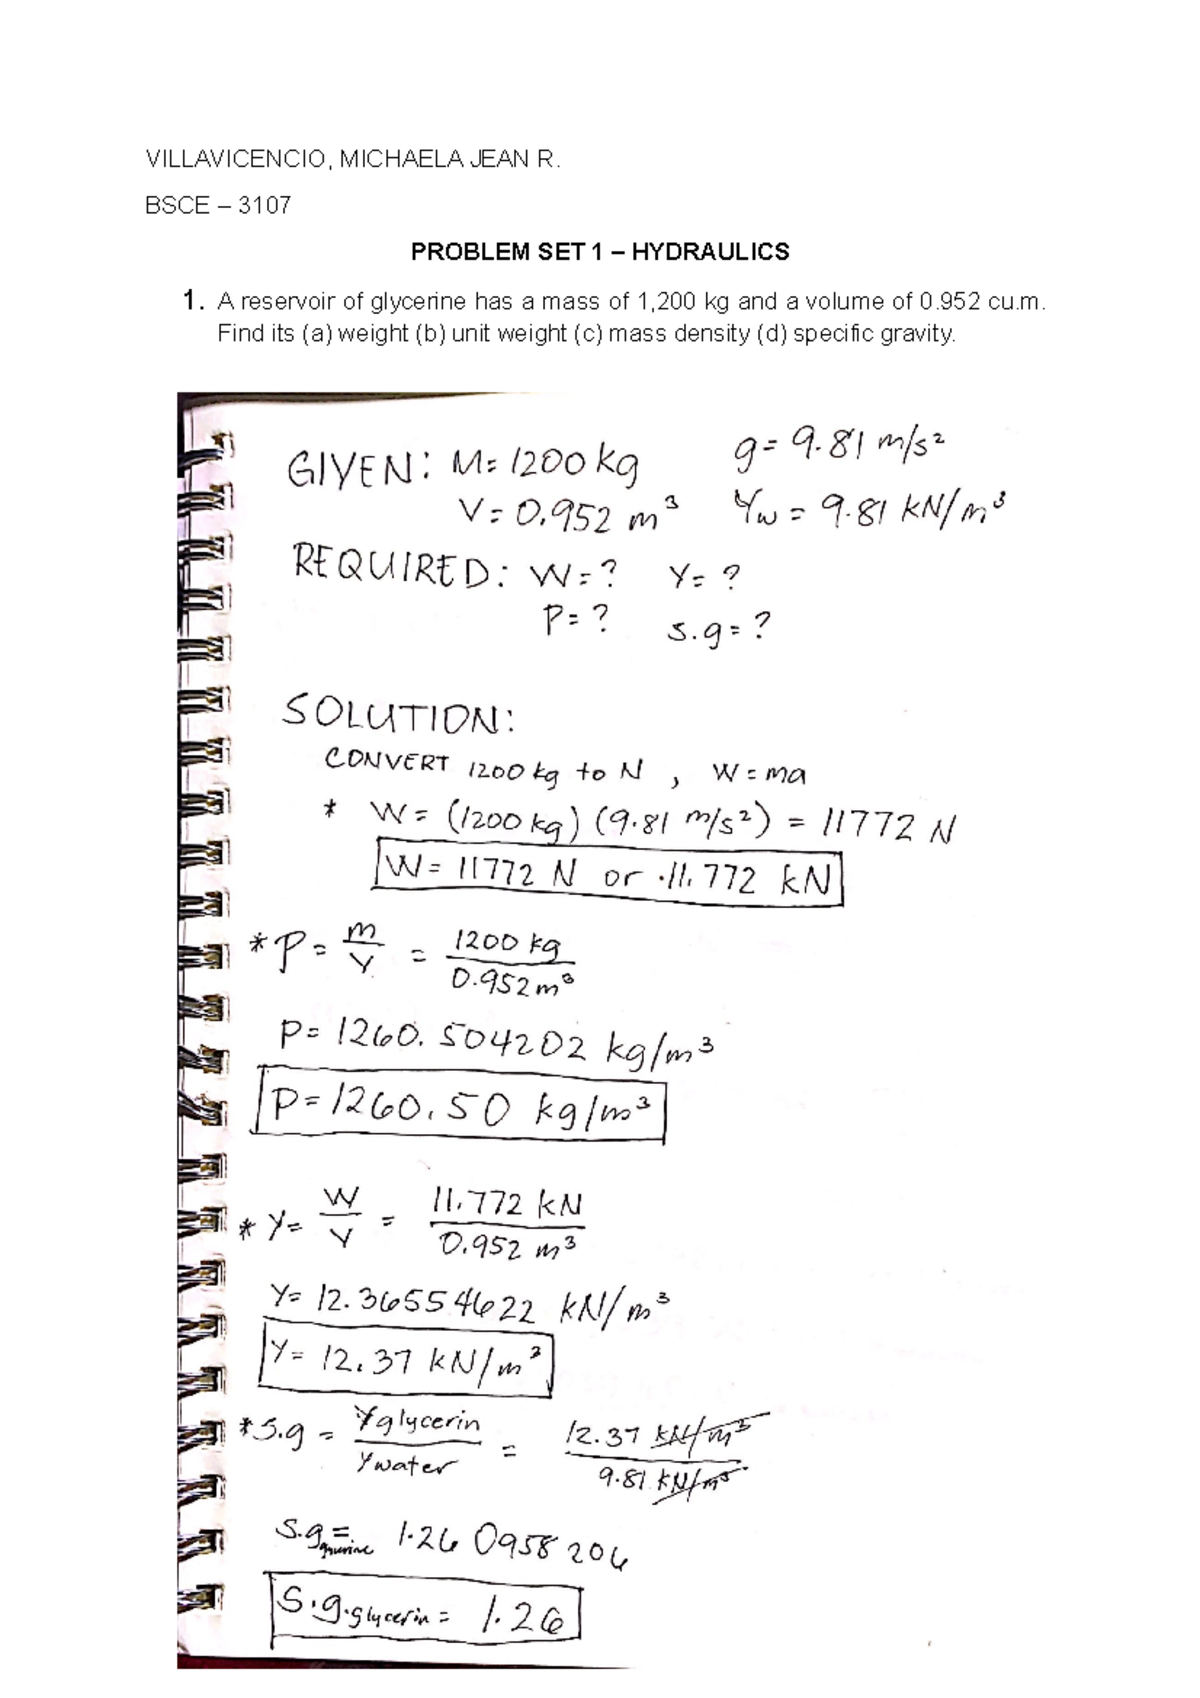 VILLAVICENCIO, MICHAELA JEAN R.
BSCE – 3107
PROBLEM SET 1 – HYDRAULICS
1. A reservoir of glycerine has a mass of 1,200 kg and a volume of 0.952 cu.m.
Find its (a) weight (b) unit weight (c) mass density (d) specific gravity.
GIVEN: M= 1200 kg g= 9.81 m/s²
V= 0.952 m³ γw = 9.81 kN/m³
REQUIRED: W=? γ= ?
ρ= ? s.g= ?
SOLUTION:
CONVERT 1200 kg to N , W = ma
* W= (1200 kg) (9.81 m/s²) = 11772 N
W= 11772 N or 11.772 kN
* ρ = m/V = 1200 kg / 0.952 m³
ρ= 1260.504202 kg/m³
ρ= 1260.50 kg/m³
* γ= W/V = 11.772 kN / 0.952 m³
γ= 12.36554622 kN/m³
γ= 12.37 kN/m³
* s.g = γglycerin / γwater = 12.37 kN/m³ / 9.81 kN/m³
s.g = 1.260958206
s.g.glycerin = 1.26